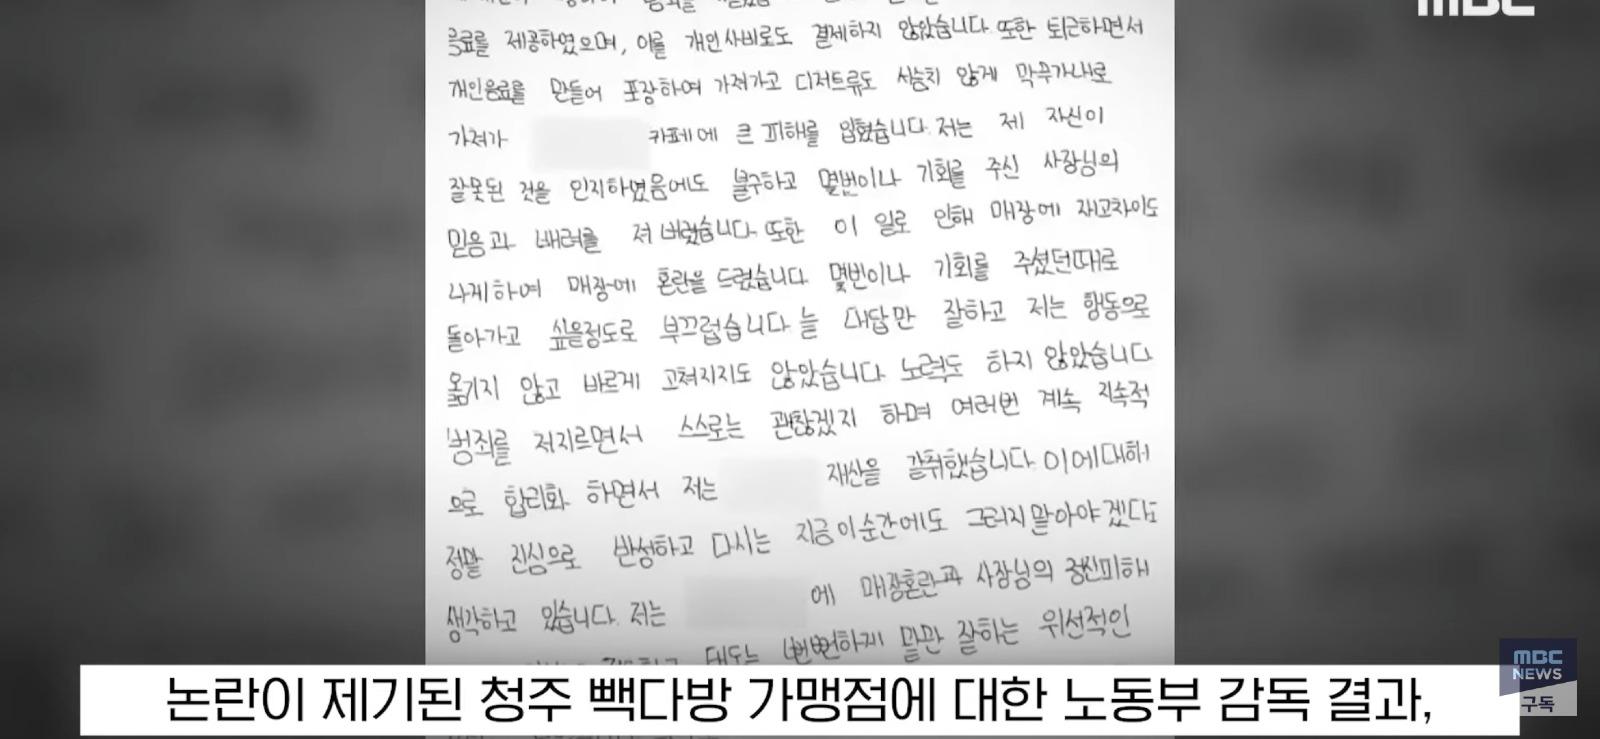 MBC
음료를 제공하였으며, 이를 개인사비로도 결제하지 않았습니다. 또한 퇴근하면서
개인음료를 만들어 포장하여 가져가고 디저트류도 서슴치 않게 막무가내로
가져가 카페에 큰 피해를 입혔습니다. 저는 제 자신이
잘못된 것을 인지하였음에도 불구하고 몇번이나 기회를 주신 사장님의
믿음과 배려를 져버렸습니다. 또한 이 일로 인해 매장에 재고차이도
나게하여 매장에 혼란을 드렸습니다. 몇번이나 기회를 주셨던때로
돌아가고 싶을정도로 부끄럽습니다. 늘 대답만 잘하고 저는 행동으로
옮기지 않고 바르게 고쳐지지도 않았습니다. 노력도 하지 않았습니다
범죄를 저지르면서 스스로는 괜찮겠지 하며 여러번 계속 지속적
으로 합리화 하면서 저는 재산을 갈취했습니다. 이에대해서
정말 진심으로 반성하고 다시는 지금 이 순간에도 그러지말아야겠다고
생각하고 있습니다. 저는 에 매장혼란과 사장님의 정신피해
태도는 뻔뻔하게 말만 잘하는 위선적인
논란이 제기된 청주 빽다방 가맹점에 대한 노동부 감독 결과,
MBC
NEWS
구독